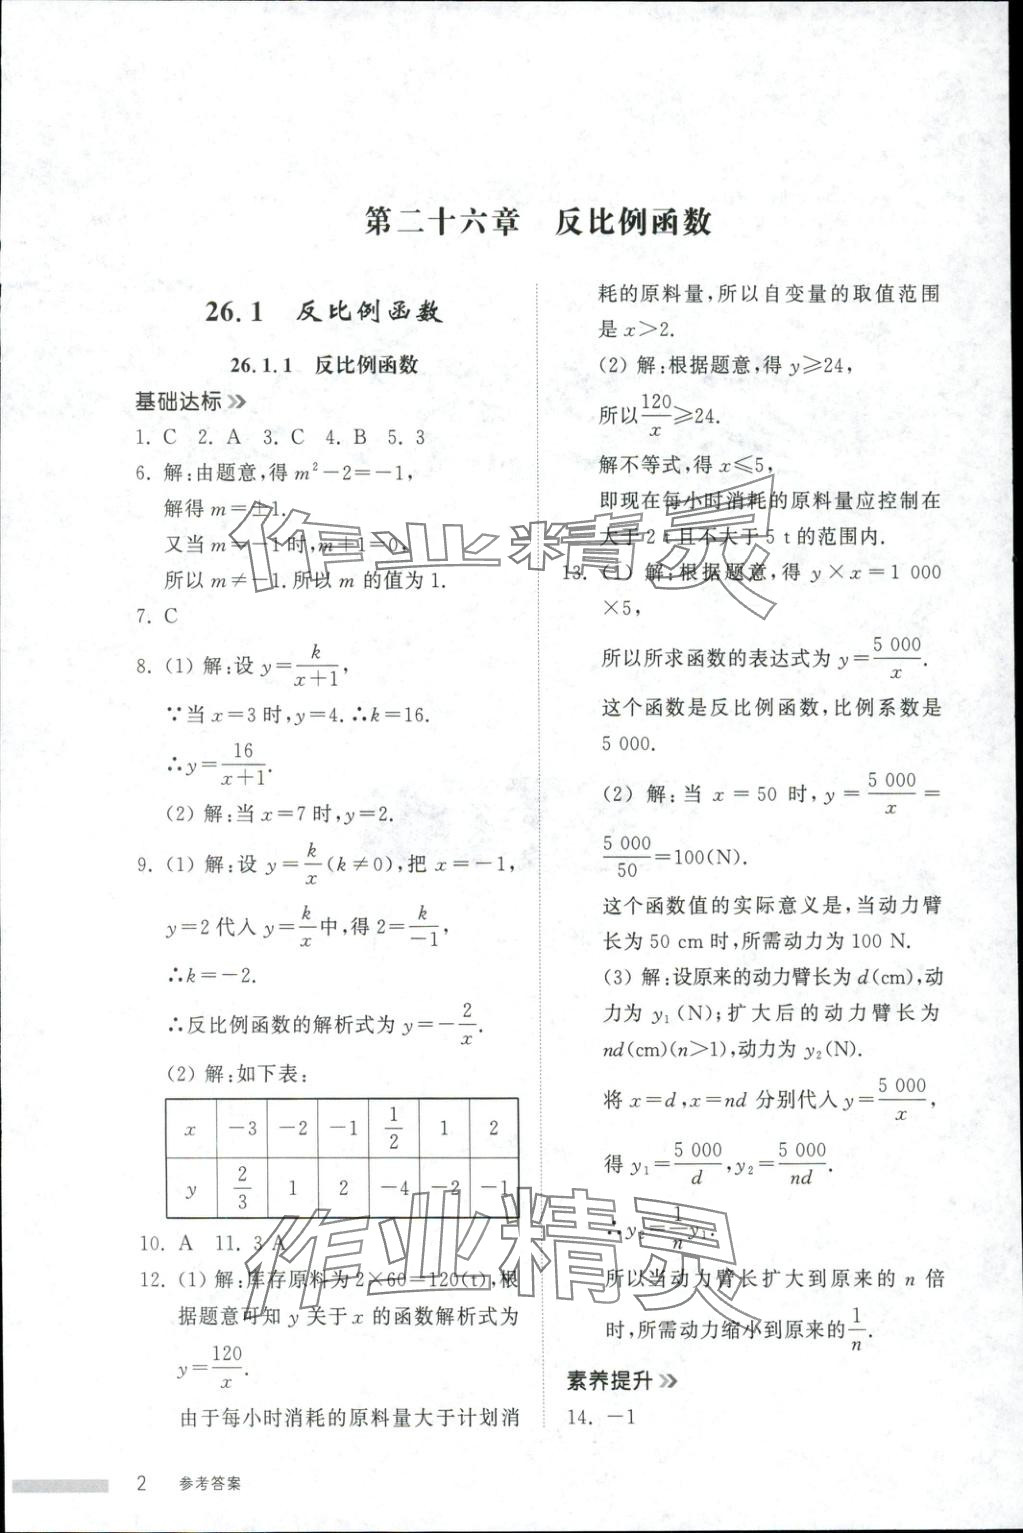 第二十六章 反比例函数
26.1 反比例函数
26.1.1 反比例函数
基础达标
1. C 2. A 3. C 4. B 5. 3
6. 解:由题意,得 m²-2=-1,
解得 m=±1.
又当 m=-1时,m+1=0,
所以 m≠-1.所以 m 的值为 1.
7. C
8. (1) 解:设 y=k/(x+1),
∵当 x=3 时,y=4.∴k=16.
∴y=16/(x+1).
(2) 解:当 x=7 时,y=2.
9. (1) 解:设 y=k/x(k≠0),把 x=-1,
y=2 代入 y=k/x中,得 2=k/-1,
∴k=-2.
∴反比例函数的解析式为 y=-2/x.
(2) 解:如下表:
x -3 -2 -1 1/2 1 2
y 2/3 1 2 -4 -2 -1
10. A 11. 3 A
12. (1) 解:库存原料为 2×60=120(t),根
据题意可知 y 关于 x 的函数解析式为
y=120/x.
由于每小时消耗的原料量大于计划消
耗的原料量,所以自变量的取值范围
是 x>2.
(2) 解:根据题意,得 y≥24,
所以120/x≥24.
解不等式,得 x≤5,
即现在每小时消耗的原料量应控制在
大于 2 t 且不大于 5 t 的范围内.
13. (1) 解:根据题意,得 y×x=1 000
×5,
所以所求函数的表达式为 y=5 000/x.
这个函数是反比例函数,比例系数是
5 000.
(2) 解:当 x=50 时,y=5 000/x=
5 000/50=100(N).
这个函数值的实际意义是,当动力臂
长为 50 cm 时,所需动力为 100 N.
(3) 解:设原来的动力臂长为 d(cm),动
力为 y₁(N);扩大后的动力臂长为
nd(cm)(n>1),动力为 y₂(N).
将 x=d,x=nd 分别代入 y=5 000/x,
得 y₁=5 000/d,y₂=5 000/nd.
∴y₂=1/n y₁.
所以当动力臂长扩大到原来的 n 倍
时,所需动力缩小到原来的1/n.
素养提升
14. -1
2 参考答案
作业精灵
作业精灵